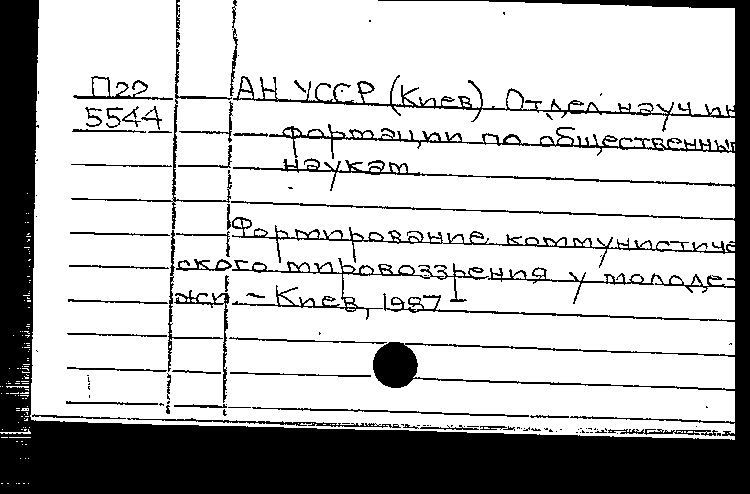 П22
5544
АН УССР (Киев). Отдел науч ин
формации по общественны
наукам.
Формирование коммунистиче
ского мировоззрения у молоде-
жи. - Киев, 1987 -